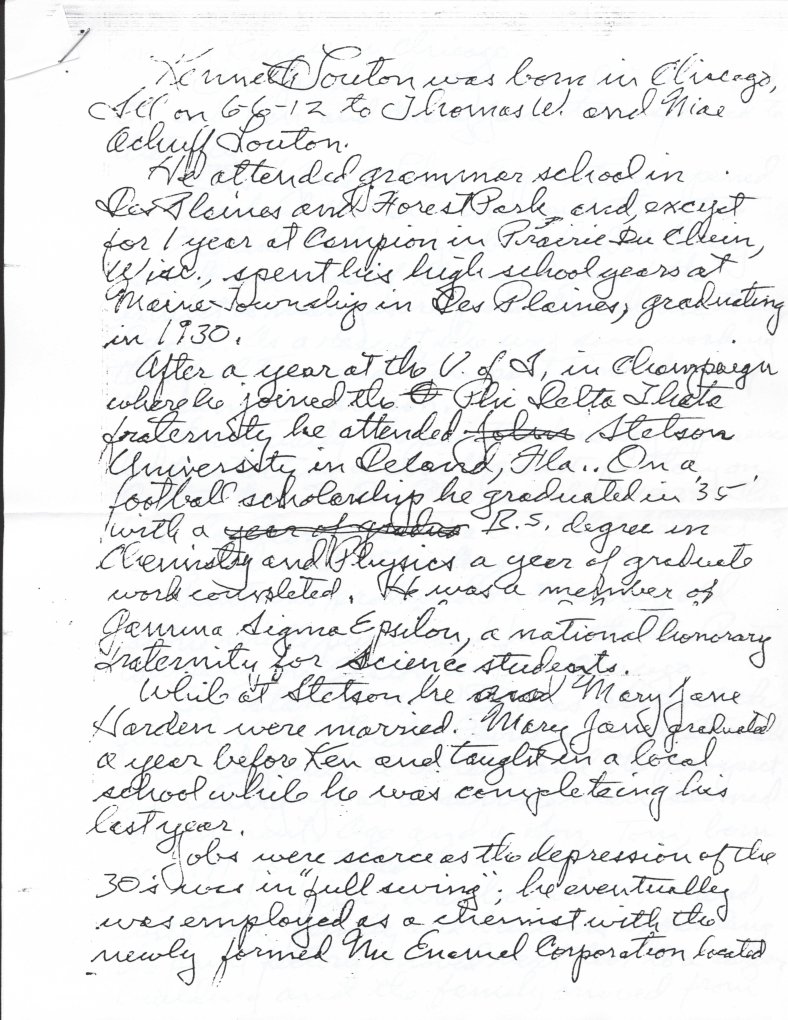 1
Kenneth Louton was born in Chicago,
Ill on 6-6-12 to Thomas W. and Mae
Achuff Louton.
He attended grammar school in
Des Plaines and Forest Park and, except
for 1 year at Campion in Prairie Du Chein,
Wisc., spent his high school years at
Maine Township in Des Plaines, graduating
in 1930.
After a year at the U. of I, in Champaign
where he joined the Phi Delta Theta
fraternity he attended Stetson
University in Deland, Fla.. On a
football scholarship he graduated in '35'
with a year of gradua B.S. degree in
Chemistry and Physics a year of graduate
work completed. He was a member of
Gamma Sigma Epsilon, a national honorary
fraternity for science students.
While at Stetson he and Mary Jane
Harden were married. Mary Jane graduated
a year before Ken and taught in a local
school while he was completeing his
last year.
Jobs were scarce as the depression of the
30's was in "full swing"; he eventually
was employed as a chemist with the
newly formed Nu Enamel Corporation located